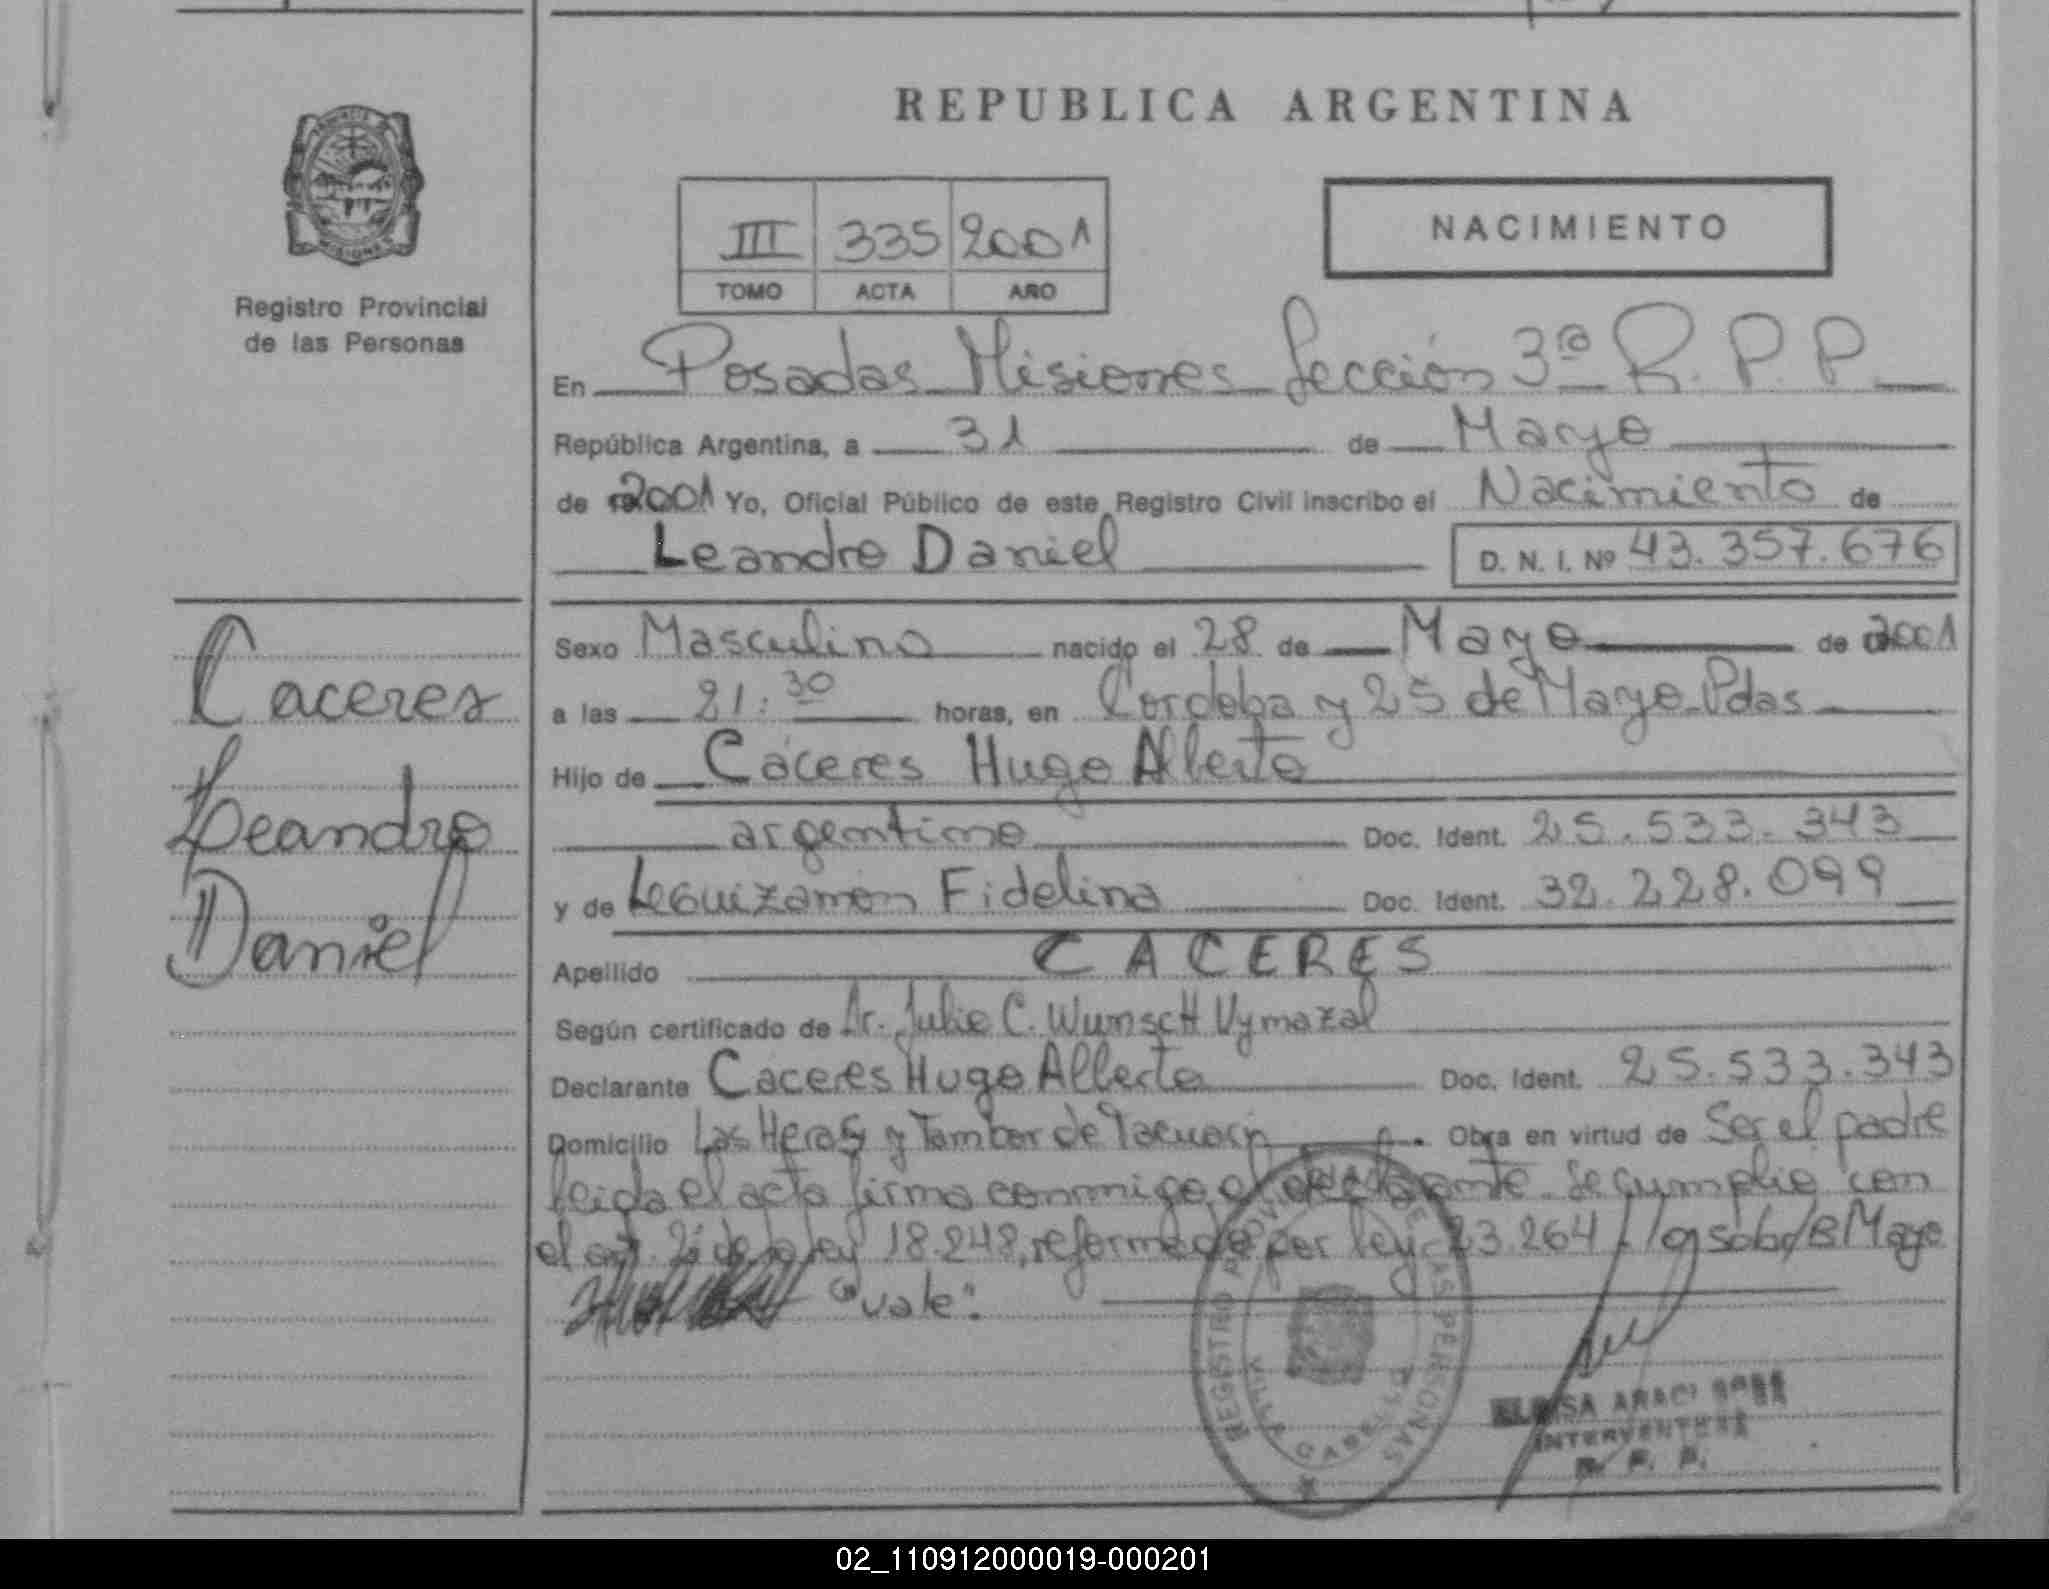 REPUBLICA ARGENTINA
III 335 2001
TOMO ACTA AÑO
NACIMIENTO
Registro Provincial
de las Personas
En Posadas Misiones Sección 3ª R. P. P.
República Argentina, a 31 de Mayo
de 2001 Yo, Oficial Público de este Registro Civil inscribo el Nacimiento de
Leandro Daniel D. N. I. Nº 43.357.676
Caceres
Leandro
Daniel
Sexo Masculino nacido el 28 de Mayo de 2001
a las 21:30 horas, en Cordoba y 25 de Mayo Pdas
Hijo de Cáceres Hugo Alberto
argentino Doc. Ident. 25.533.343
y de Leguizamón Fidelina Doc. Ident. 32.228.099
Apellido CACERES
Según certificado de Dr. Julio C. Wunsch Vymazal
Declarante Caceres Hugo Alberto Doc. Ident. 25.533.343
Domicilio Las Heras y Tambor de Tacuarí. Obra en virtud de Ser el padre
leida el acta firma conmigo el declarante. Se cumplio con
el art. 2º de la ley 18.248, reformada por ley 23.264 Mayo
"vale".
REGISTRO PROVINCIAL DE LAS PERSONAS
VILLA CABELLO
INTERVENTORA
R. P. P.
02_110912000019-000201